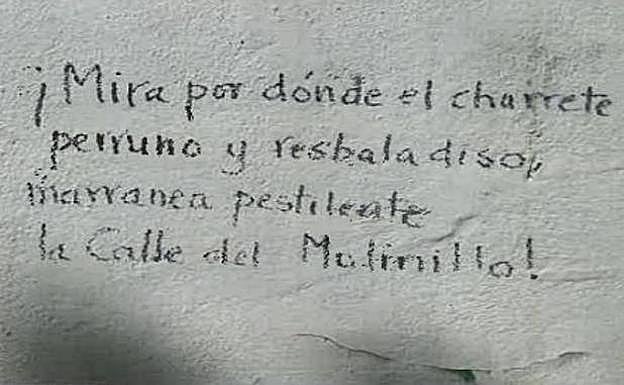 ¡Mira por dónde el charrete
perruno y resbaladiso,
marranea pestilente
la Calle del Molinillo!